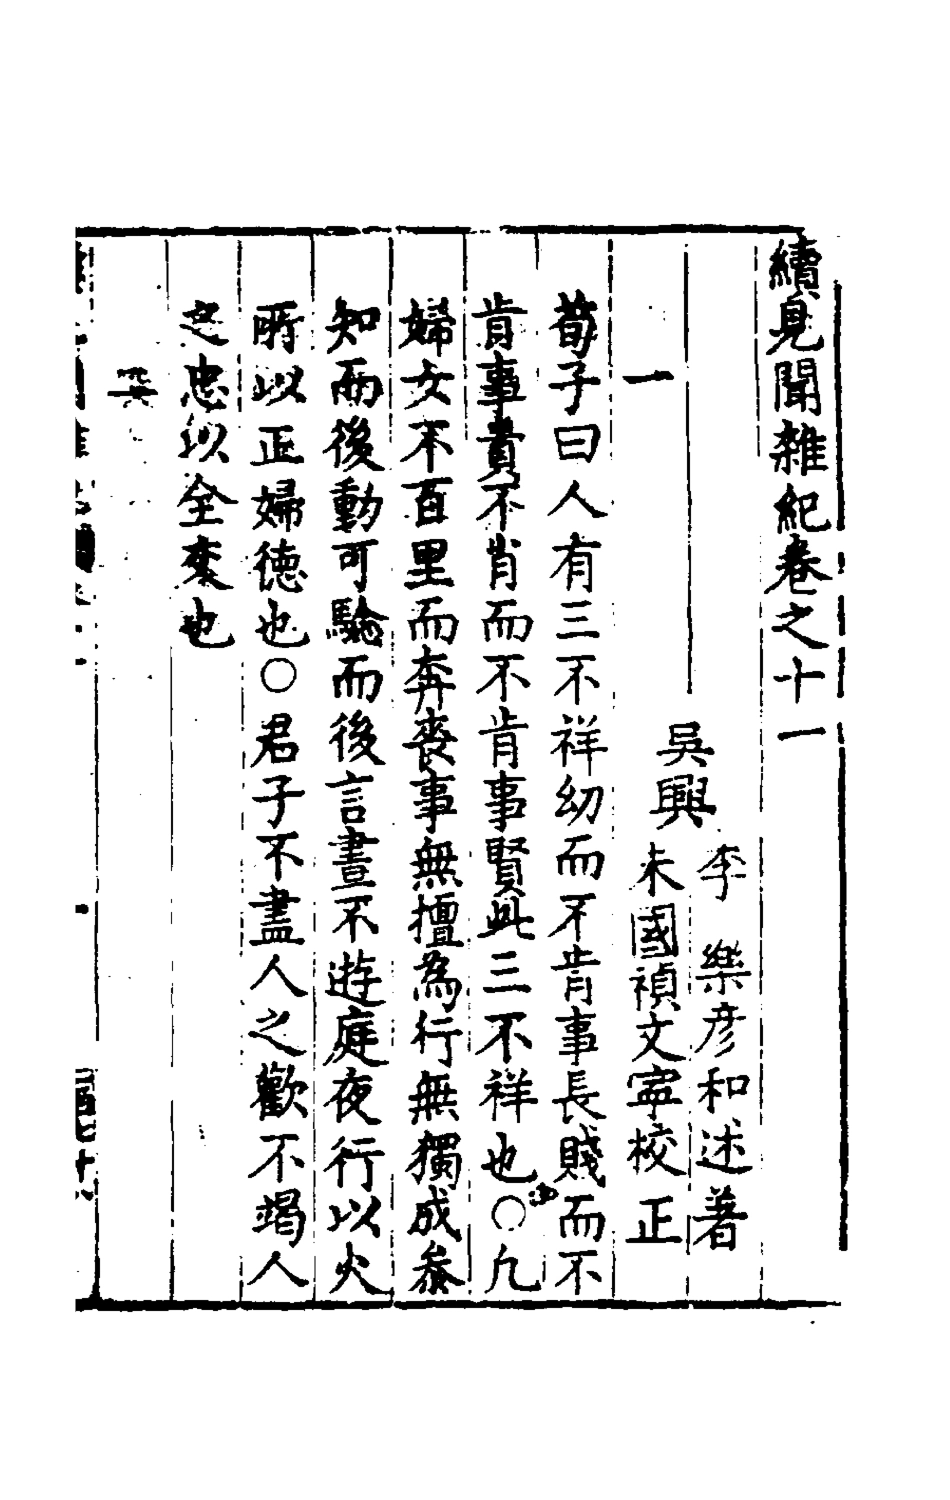 續見聞雜紀卷之十一
吳興
李　樂彥和述著
朱國禎文寧校正
一
荀子曰人有三不祥幼而不肯事長賤而不
肯事貴不肖而不肯事賢此三不祥也○凢
婦女不百里而奔喪事無擅為行無獨成叅
知而後動可驗而後言晝不遊庭夜行以火
所以正婦徳也○君子不盡人之歡不竭人
之忠以全交也